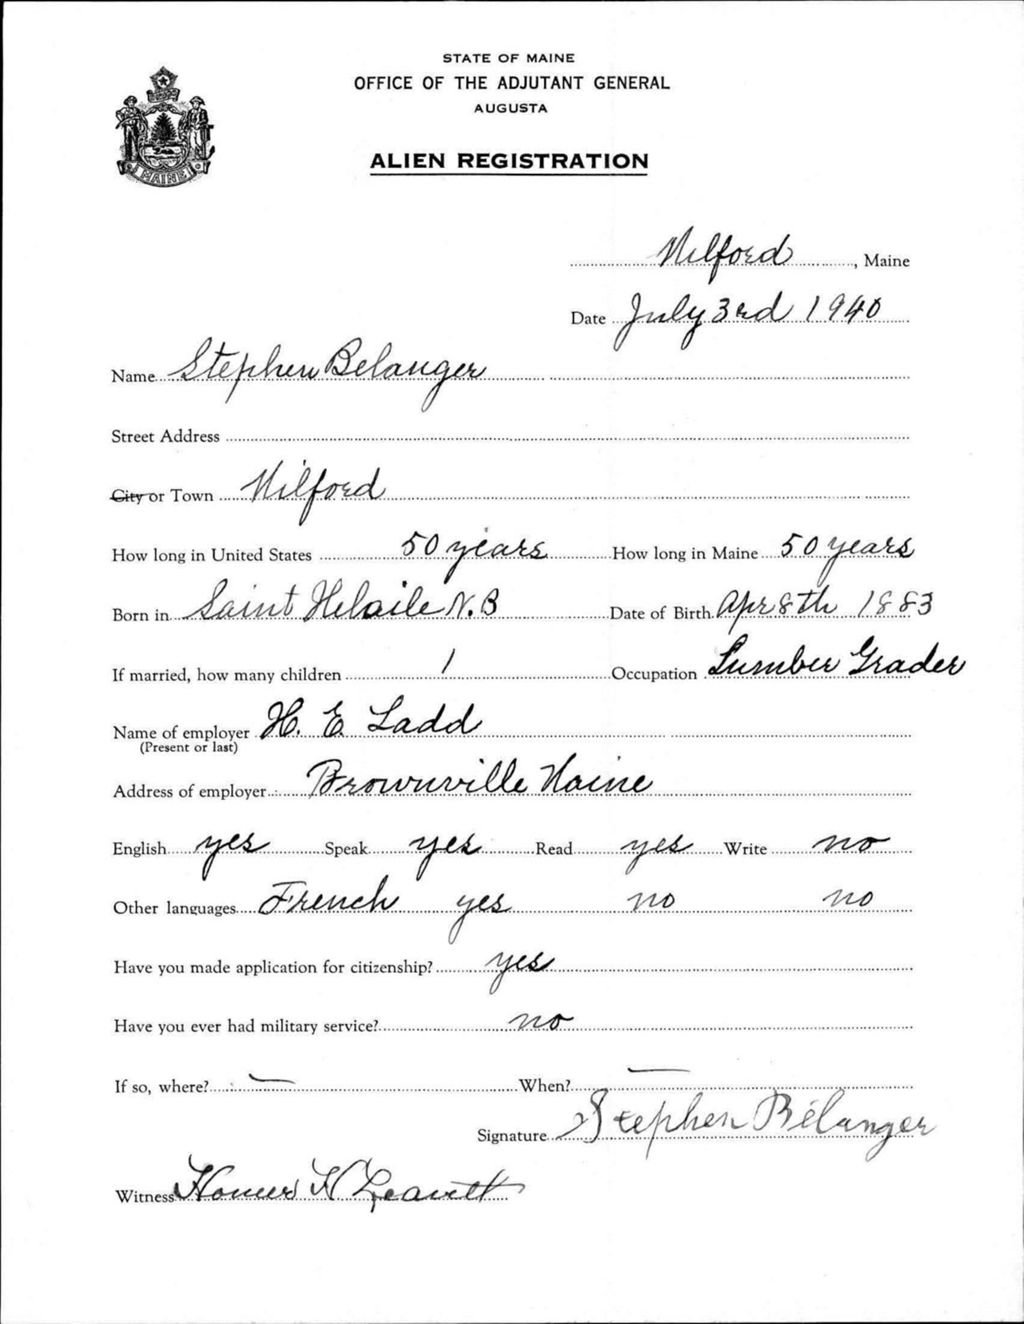 STATE OF MAINE
OFFICE OF THE ADJUTANT GENERAL
AUGUSTA
MAINE
ALIEN REGISTRATION
Milford, Maine
Date July 3rd 1940
Name Stephen Belanger
Street Address
City or Town Milford
How long in United States 50 years How long in Maine 50 years
Born in Saint Helaile N.B Date of Birth Apr 8th 1883
If married, how many children 1 Occupation Lumber Grader
Name of employer H. E Ladd
(Present or last)
Address of employer Brownville Maine
English yes Speak yes Read yes Write no
Other languages French yes no no
Have you made application for citizenship? yes
Have you ever had military service? no
If so, where? — When? —
Signature Stephen Bélanger
Witness Homer H Leavitt